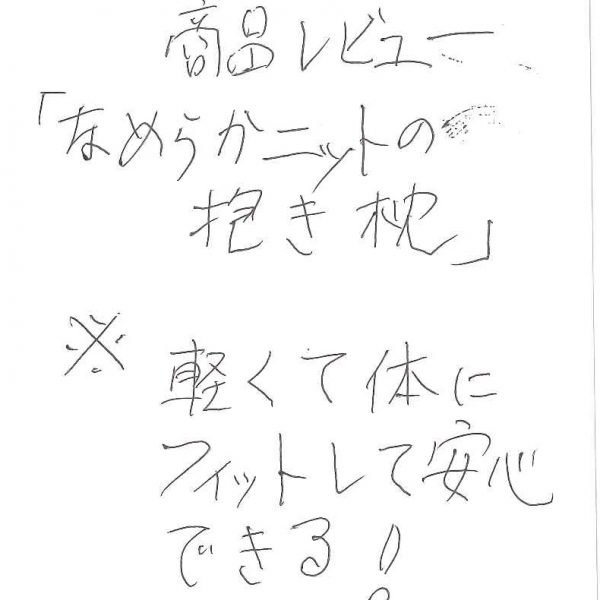 商品レビュー
「なめらかニットの
抱き枕」
※ 軽くて体に
フィットして安心
できる!